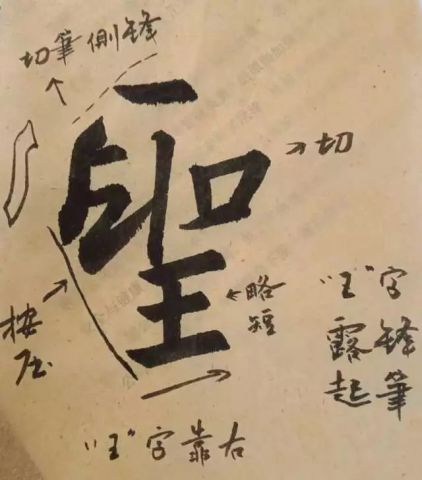 切筆側锋
聖
切
按
压
略
短
"王"字
露锋
起筆
"王"字靠右